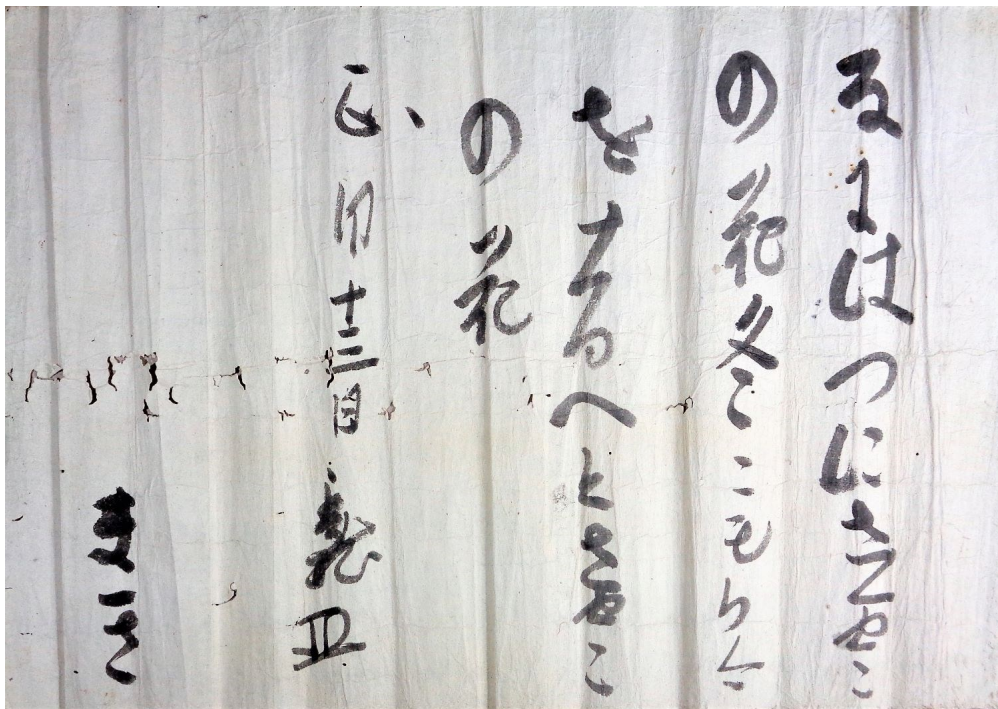 なにはつにさくやこ
の花冬こもり今
をはるへとさくやこ
の花
正月十三日